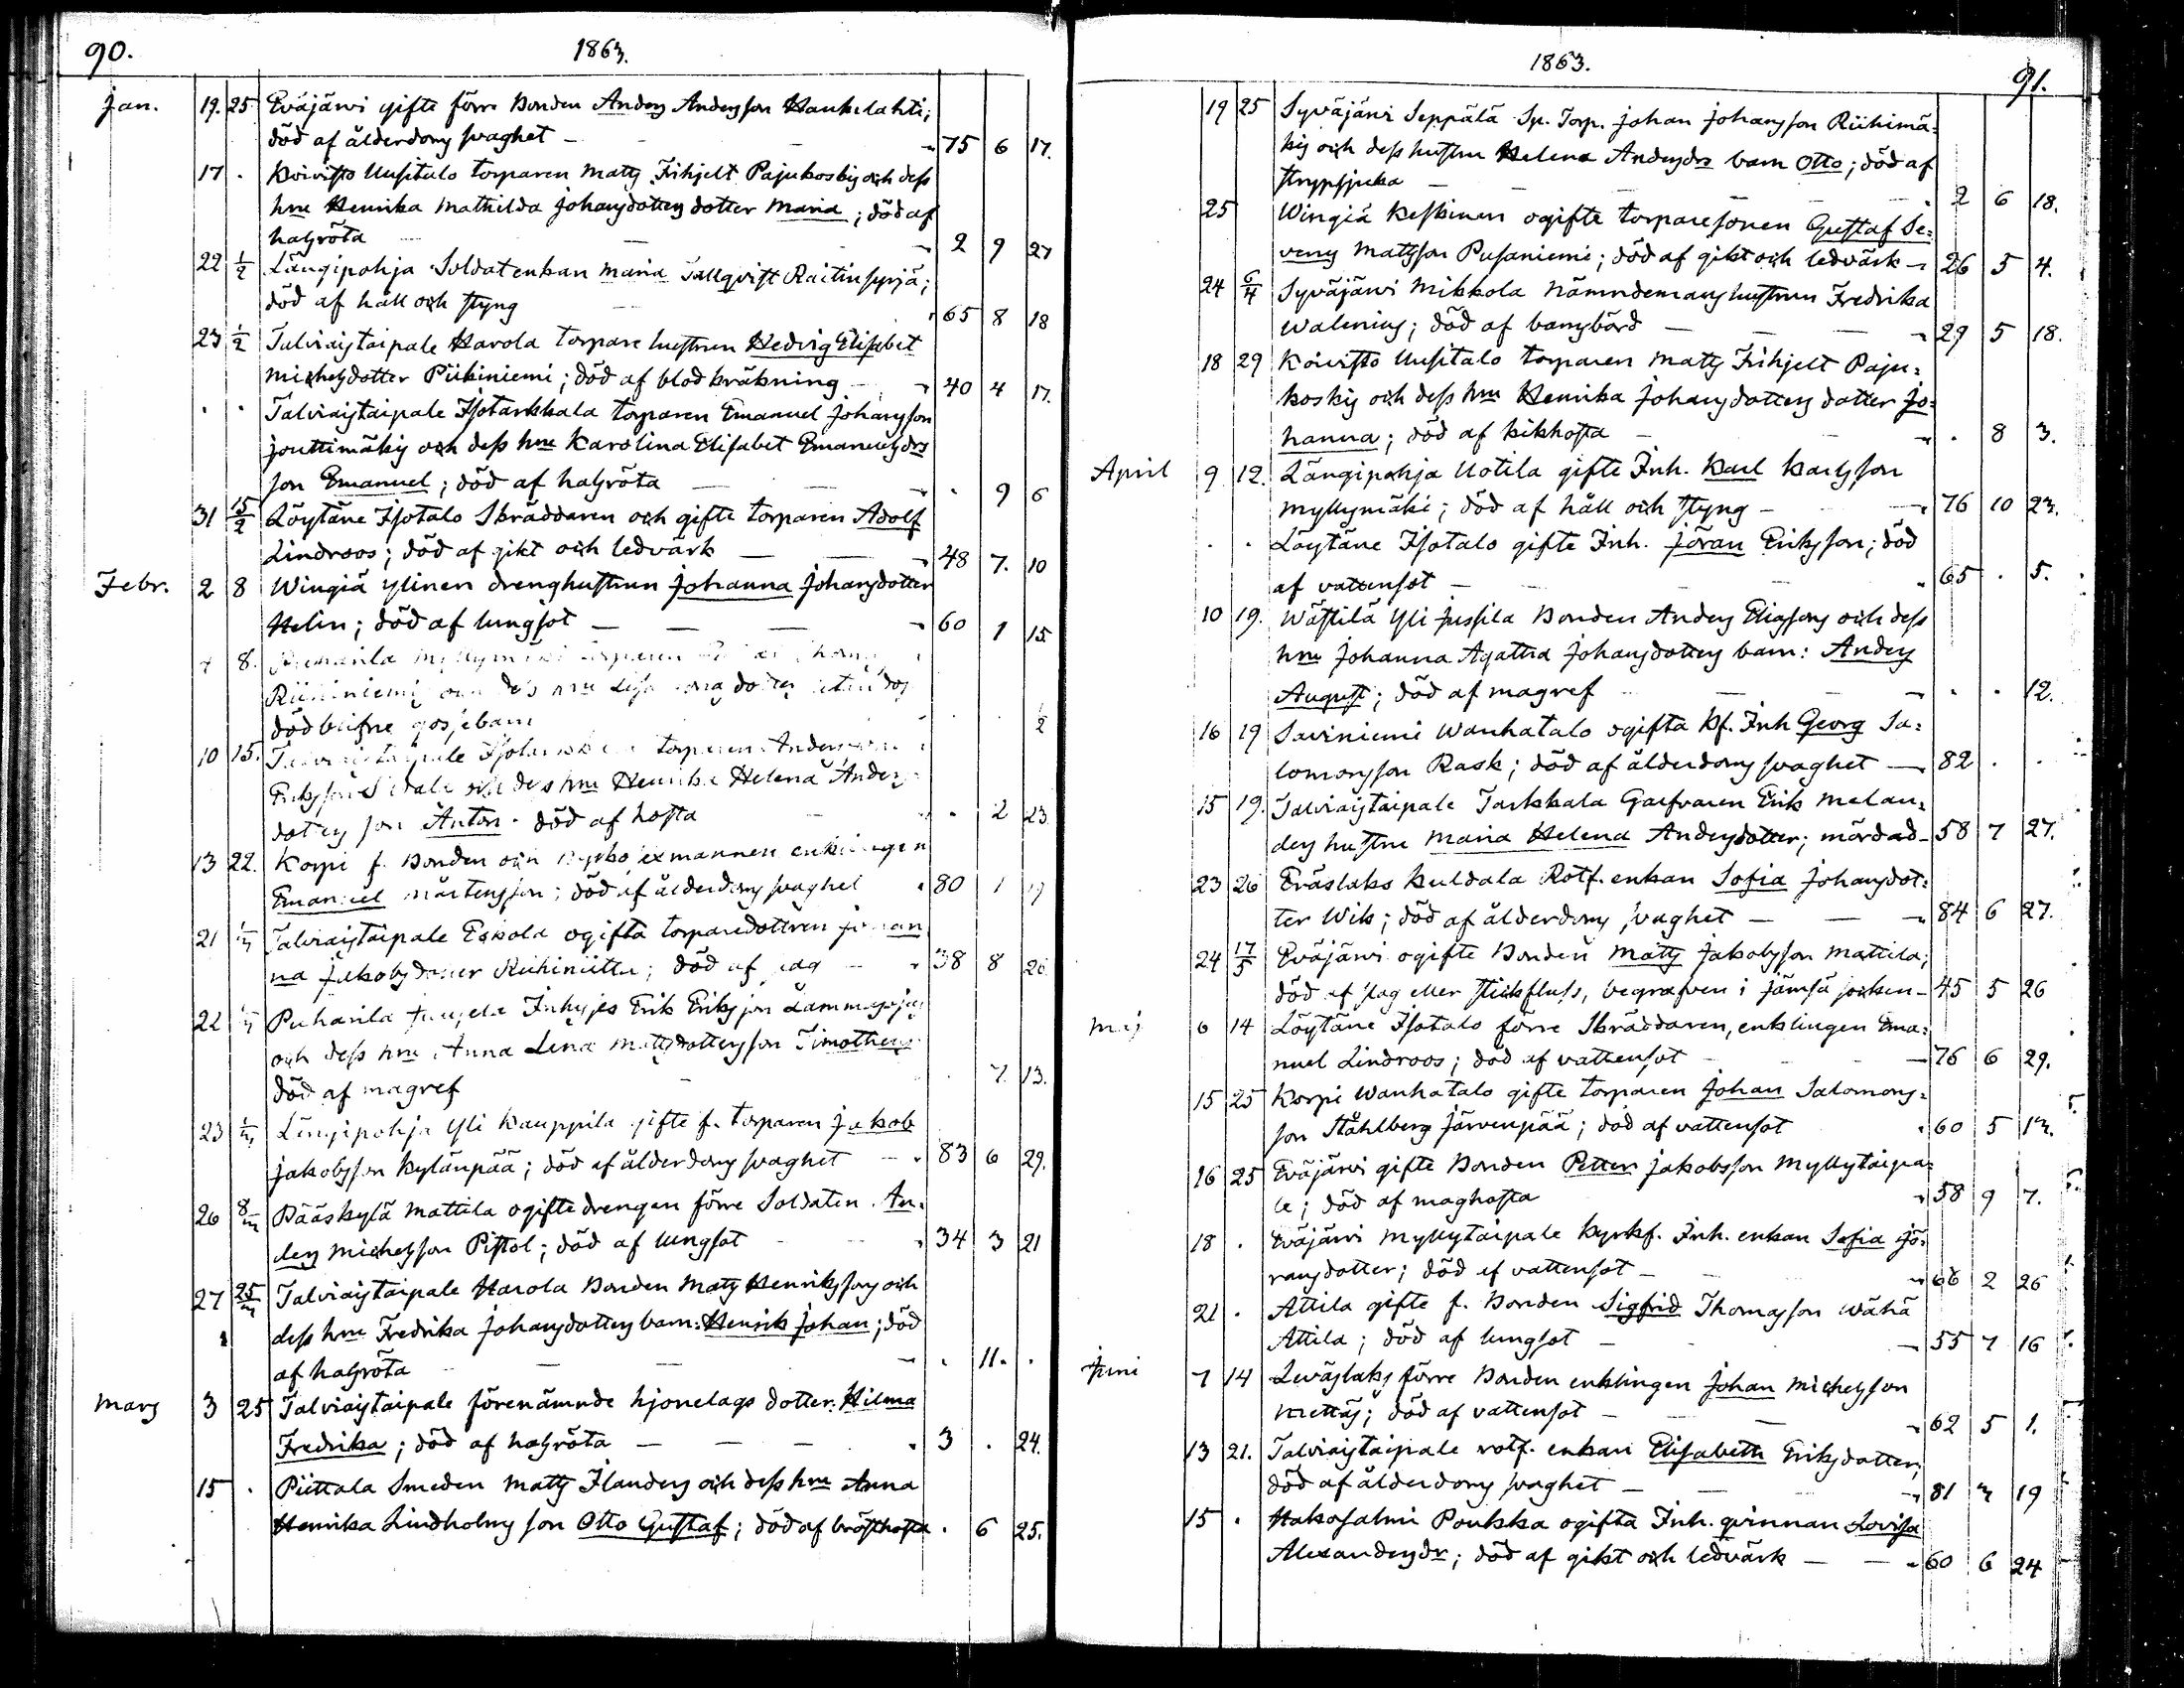 90.
1863.
Jan. 19. 25. Eväjärvi gifte förre Bonden Anders Andersson Haukilahti;
död af ålderdoms svaghet — 75 6 17.
17 . Koivisto Uusitalo torparen Matts Frihjelt Pajukoskis och dess
hru Henrika Mathilda Johansdotters dotter Maria; död af
halsröta — 2 9 27
22 1/2 Längipohja Soldatenkan Maria Tallqvist Raitinsyrjä;
död af håll och styng 65 8 18
23 1/2 Talviaistaipale Harola torpare hustrun Hedvig Elisabet
Michelsdotter Piikiniemi; död af blodkräkning 40 4 17.
. . Talviaistaipale Isotarkkala torparen Emanuel Johansson
Jouttimäkis och dess hru Karolina Elisabet Emanuelsdrs
son Emanuel; död af halsröta — . 9 6
31 15/2 Löytäne Isotalo Skräddaren och gifte torparen Adolf
Lindroos; död af gikt och ledvärk — 48 7. 10
Febr. 2 8 Wingiä Ylinen drenghustrun Johanna Johansdotter
Helin; död af lungsot — 60 1 15
8.
Riihiniemi
dödblifne gossebarn 1/2
10 15. torparen Anders
Eriksson och dess hru Henrika Helena Anders
dotters son Anton. död af hosta . 2 23
13 22. Korpi f. Bonden och enklingen
Emanuel Mårtensson; död af ålderdoms svaghet 80 1
21 Talviaistaipale Eskola ogifta torparedottren Johan
na Jakobsdotter Riihiniittu; död af slag 38 8 26
22 Puharila Erik Eriksson
och dess hru Anna Lena Mattsdotters son Timotheus
död af magref . 7. 13.
23 Längipohja Yli Kauppila gifte f. torparen Jakob
Jakobsson Kylänpää; död af ålderdoms svaghet 83 6 29.
26 8/3 Pääskylä Mattila ogifte drengen förre Soldaten An-
ders Michelsson Pistol; död af lungsot 34 3 21
27 25/3 Talviaistaipale Harola Bonden Matts Henrikssons och
dess hru Fredrika Johansdotters barn: Henrik Johan; död
af halsröta — . 11. .
Mars 3 25 Talviaistaipale förenämnde hjonelags dotter. Hilma
Fredrika; död af halsröta — 3 . 24.
15 . Piittala Smeden Matts Flanders och dess hru Anna
Henrika Lindholms son Otto Gustaf; död af brösthosta . 6 25.
1863.
91.
19 25 Syväjärvi Seppälä Sp. Torp. Johan Johansson Riihimä-
kis och dess hustru Helena Andersdrs barn Otto; död af
strypsjuka — 2 6 18.
25 Wingiä Keskinen ogifte torparesonen Gustaf Se-
verus Mattsson Pusaniemi; död af gikt och ledvärk — 26 5 4.
24 6/4 Syväjärvi Mikkola Nämndemans hustrun Fredrika
Walenius; död af barnsbörd — 29 5 18.
18 29 Koivisto Uusitalo torparen Matts Frihjelt Paju-
koskis och dess hru Henrika Johansdotters dotter Jo-
hanna; död af kikhosta — . 8 3.
April 9 12. Längipohja Uotila gifte Inh. Karl Karlsson
Myllymäki; död af håll och styng — 76 10 23.
. . Löytäne Isotalo gifte Inh. Jöran Eriksson; död
af vattensot — 65 . 5.
10 19. Wästilä Yli Jussila Bonden Anders Eliassons och dess
hru Johanna Agatha Johansdotters barn: Anders
August; död af magref — . . 12.
16 19 Saviniemi Wanhatalo ogifta Kf. Inh Georg Sa-
lomonsson Rask; död af ålderdoms svaghet — 82 . .
15 19. Talviaistaipale Tarkkala Garfvaren Erik Melan-
ders hustru Maria Helena Andersdotter; mördad — 58 7 27.
23 26 Eräslaks Kuldala Rotf. enkan Sofia Johansdot-
ter Wik; död af ålderdoms svaghet — 84 6 27.
24 17/5 Eväjärvi ogifte Bonden Matts Jakobsson Mattila;
död af slag eller stickfluss, begrafven i Jämsä socken — 45 5 26
Maj 6 14 Löytäne Isotalo förre Skräddaren, enklingen Ema-
nuel Lindroos; död af vattensot — 76 6 29.
15 25 Korpi Wanhatalo gifte torparen Johan Salomons-
son Ståhlberg Järvenpää; död af vattensot 60 5 13.
16 25 Eväjärvi gifte Bonden Petter Jakobsson Myllytaipa-
le; död af maghosta 58 9 7.
18 . Eväjärvi Myllytaipale Kyrkf. Inh. enkan Sofia Jö-
ransdotter; död af vattensot — 66 2 26
21 . Attila gifte f. Bonden Sigfrid Thomasson Wähä
Attila; död af lungsot — 55 7 16
Juni 7 14 Leväslaks förre Bonden enklingen Johan Michelsson
Mettäs; död af vattensot — 62 5 1.
13 21. Talviaistaipale rotf. enkan Elisabeth Eriksdotter;
död af ålderdoms svaghet — 81 3 19
15 . Hakosalmi Poukka ogifta Inh. qvinnan Lovisa
Alexandersdr; död af gikt och ledvärk — 60 6 24